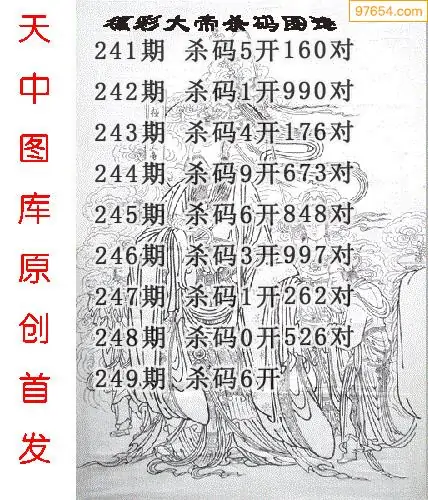 97654.com
福彩大帝杀码图迷
天中图库原创首发
241期 杀码5开160对
242期 杀码1开990对
243期 杀码4开176对
244期 杀码9开673对
245期 杀码6开848对
246期 杀码3开997对
247期 杀码1开262对
248期 杀码0开526对
249期 杀码6开